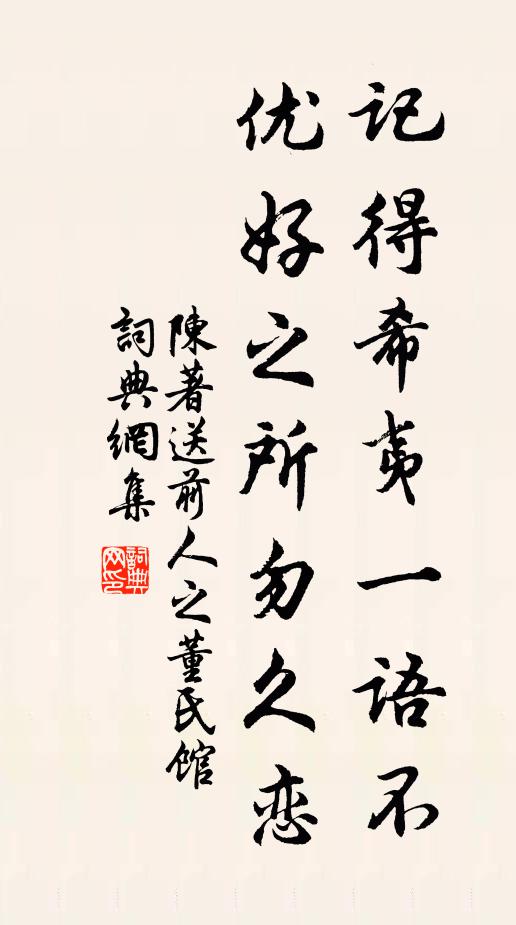 记得希夷一语不
优好之所勿久恋
陳著送前人之董民馆
詞典網集
詞典网印